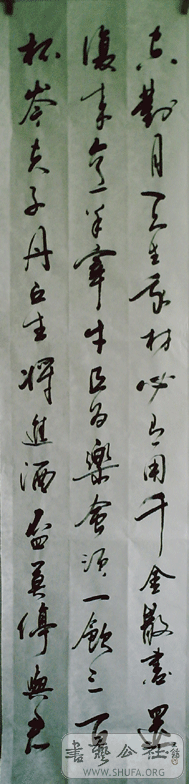 空對月天生我材必有用千金散盡還
復來烹羊宰牛且為樂會須一飲三百
杯岑夫子丹丘生將進酒盃莫停與君
書藝公社
WWW.SHUFA.ORG